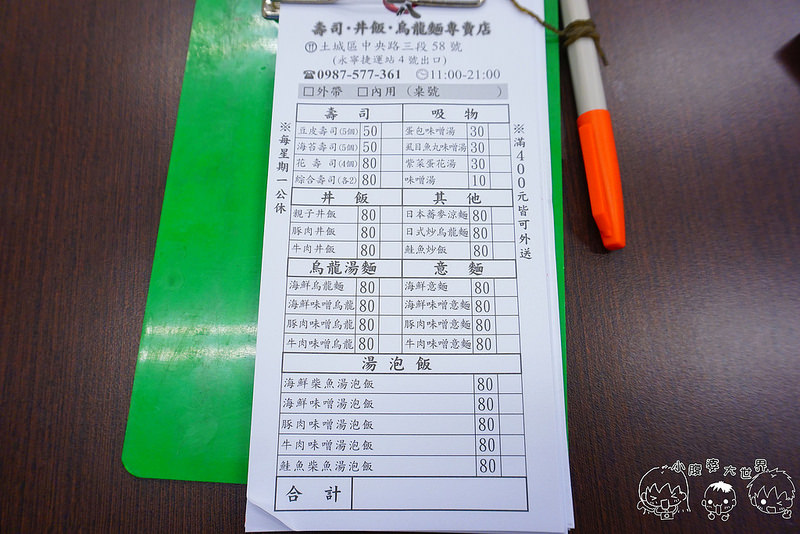 壽司·丼飯·烏龍麵專賣店
土城區中央路三段58號
(永寧捷運站4號出口)
☎0987-577-361 11:00-21:00
□外帶 □內用 (桌號 )
※每星期一公休
※滿400元皆可外送
壽司 吸物
豆皮壽司(5個) 50 蛋包味噌湯 30
海苔壽司(5個) 50 虱目魚丸味噌湯 30
花壽司(4個) 80 紫菜蛋花湯 30
綜合壽司(各2) 80 味噌湯 10
丼飯 其他
親子丼飯 80 日本蕎麥涼麵 80
豚肉丼飯 80 日式炒烏龍麵 80
牛肉丼飯 80 鮭魚炒飯 80
烏龍湯麵 意麵
海鮮烏龍麵 80 海鮮意麵 80
海鮮味噌烏龍 80 海鮮味噌意麵 80
豚肉味噌烏龍 80 豚肉味噌意麵 80
牛肉味噌烏龍 80 牛肉味噌意麵 80
湯泡飯
海鮮柴魚湯泡飯 80
海鮮味噌湯泡飯 80
豚肉味噌湯泡飯 80
牛肉味噌湯泡飯 80
鮭魚柴魚湯泡飯 80
合計
小腹婆大世界